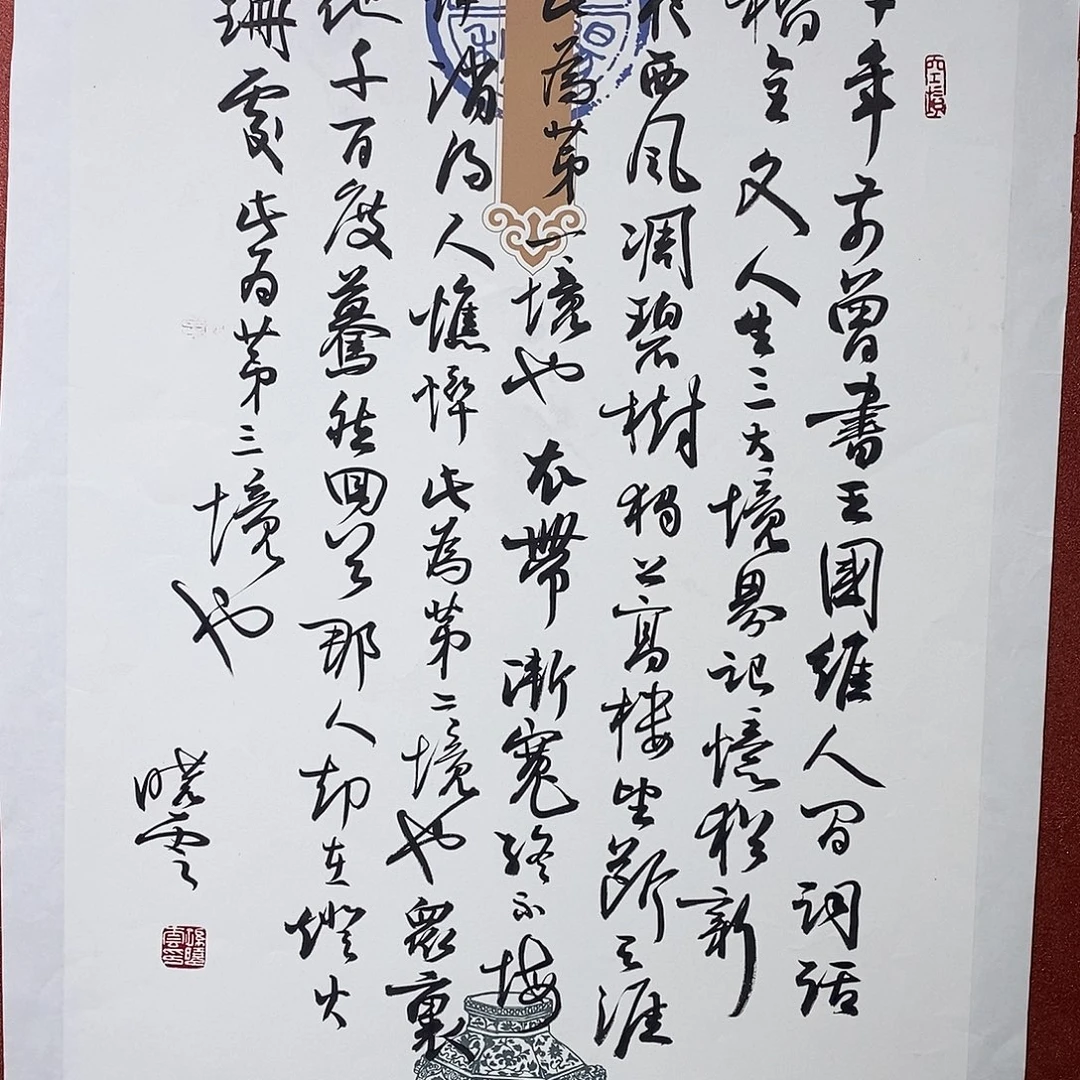 年前曾書王國維人间詞話
楷全文人生三大境界記憶猶新
西風凋碧樹獨上高樓望斷天涯
此為第一境也衣帶漸寬終不悔
伊消得人憔悴此為第二境也眾裏
他千百度驀然回首那人却在燈火
珊處此为第三境也
曉雲
孫曉雲印